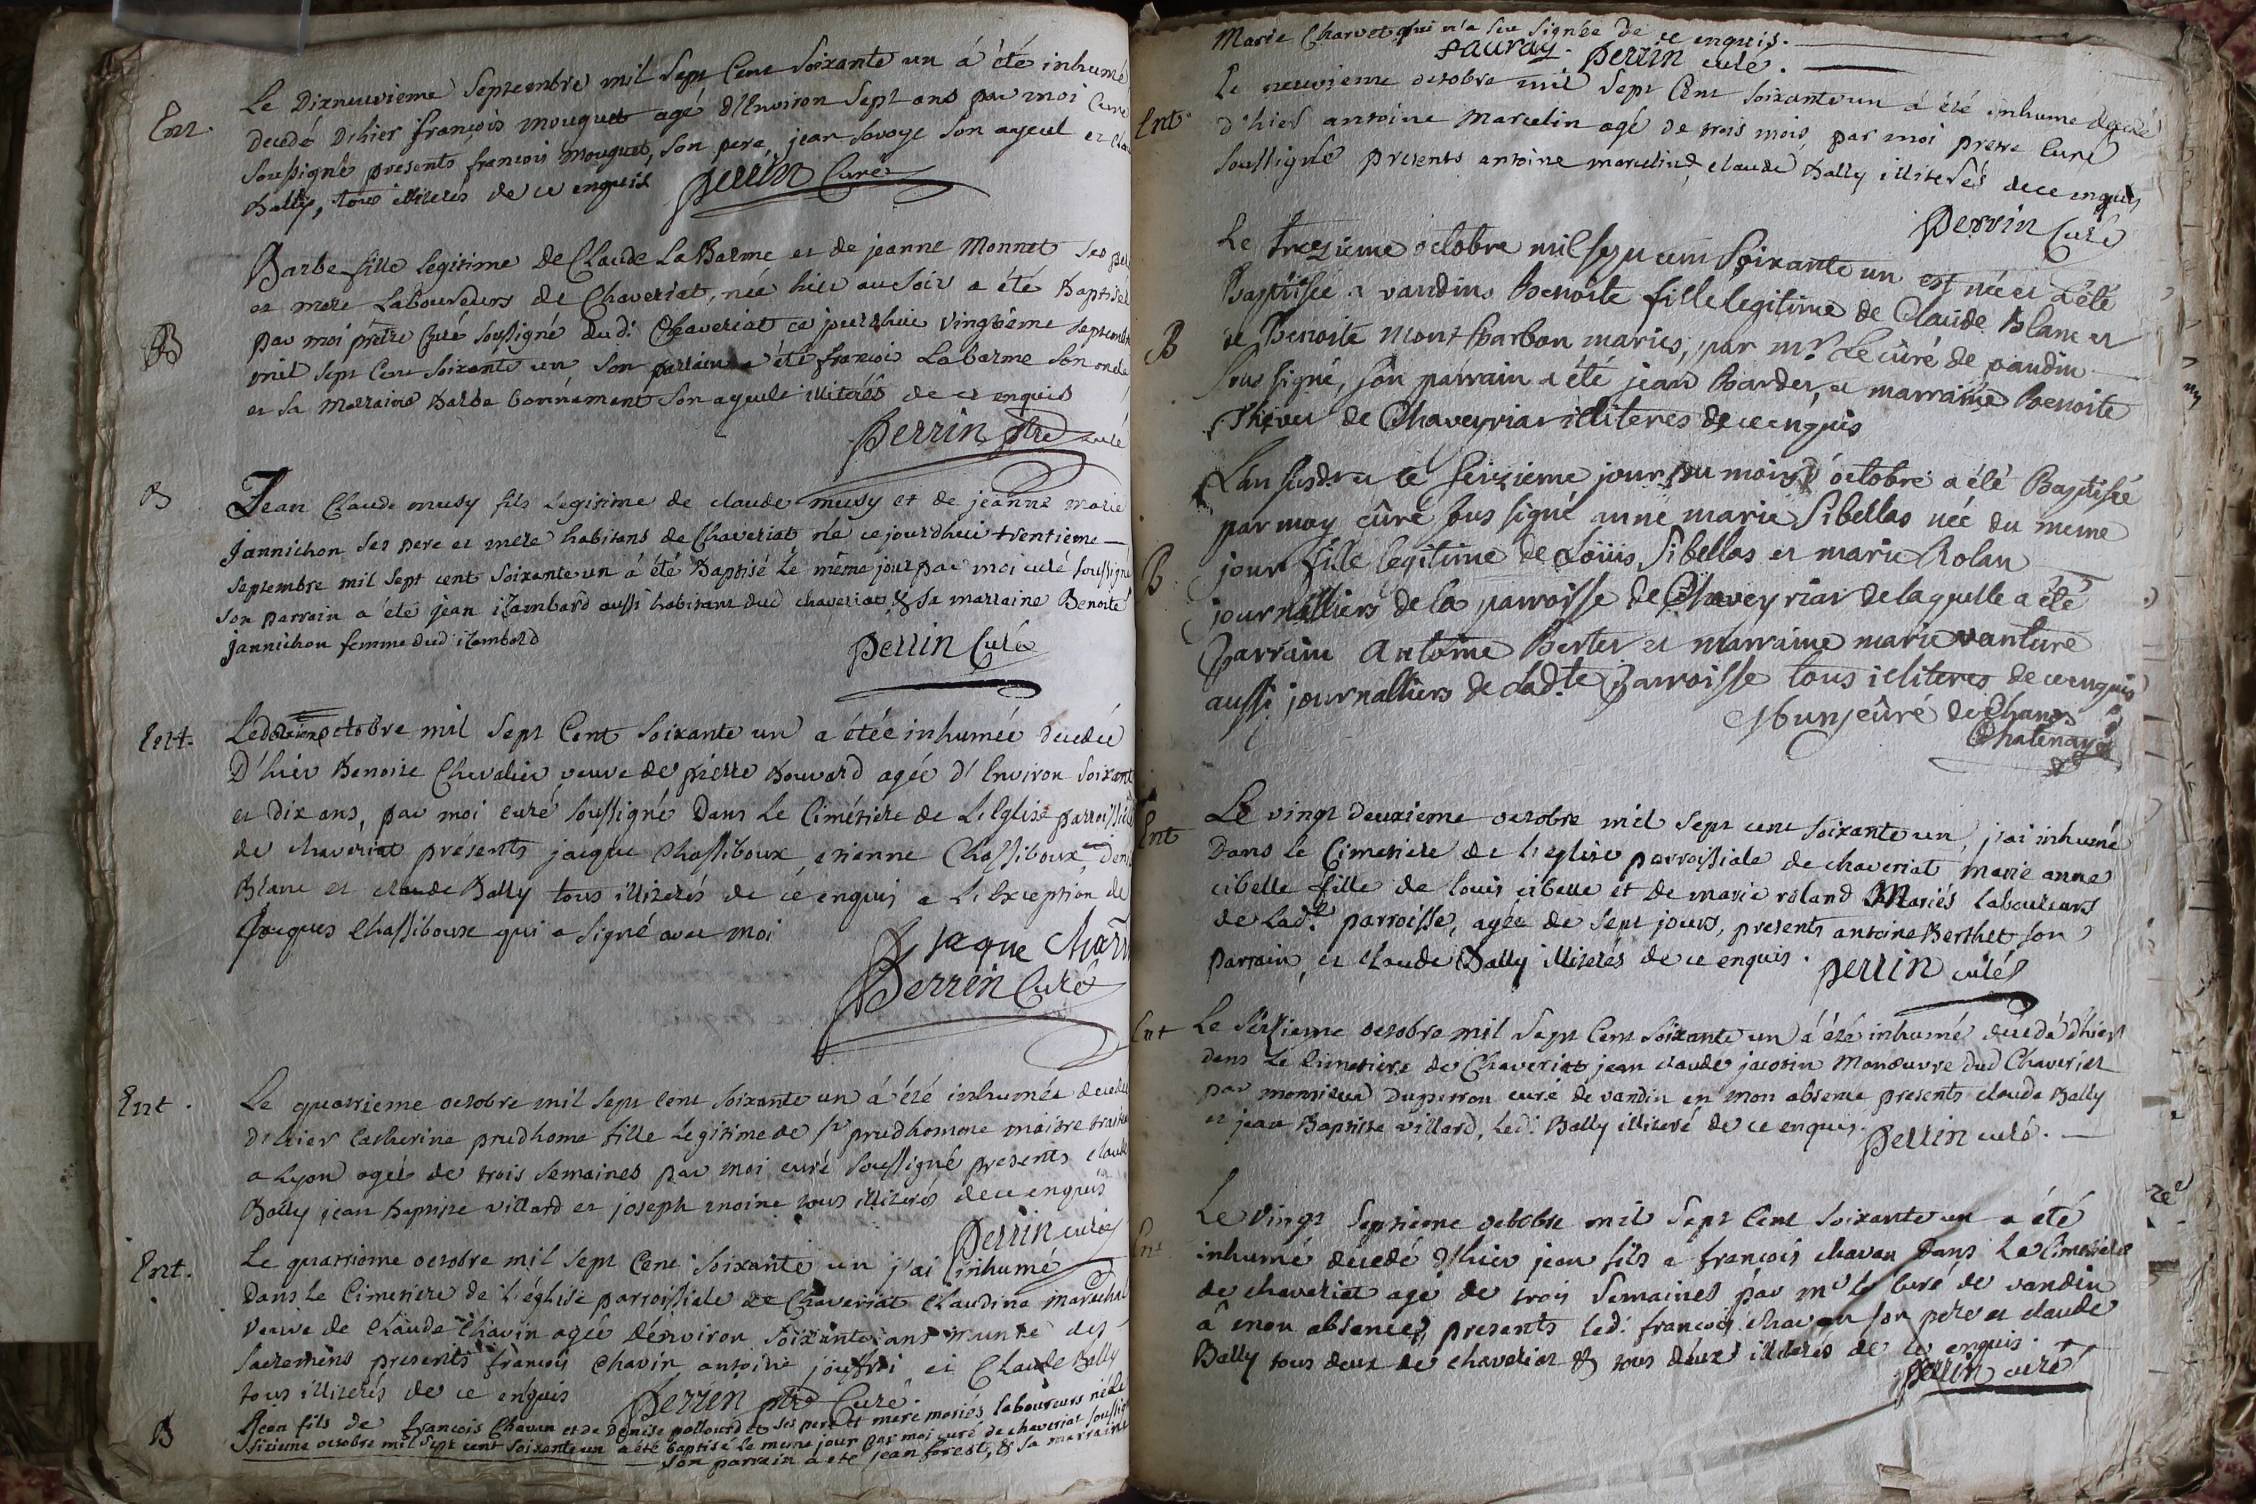 Ent.
Le Dixneuvieme Septembre mil Sept Cent Soixante un á été inhumé
decedé D'hier françois mouquet agé d'Environ Sept ans par moi Curé
Soussigné presents francois mouquet, Son pere, jean Savoye Son ayeul et
Bally, tous illiterés de ce enquis Perrin Curé
B
Barbe fille legitime de Claude La Barme et de jeanne Monnet Ses
et mere Laboureurs de Chaveriat, née hier au Soir a été Baptisée
par moi prêtre Curé Soussigné dud. Chaveriat ce jourdhui vingtieme Septembre
mil Sept Cent Soixante un Son parrain a été francois Labarme Son oncle
et Sa Marraine Barbe bonnement Son ayeule illiterés de ce enquis
Perrin ptre curé
B
Jean Claude musy fils Legitime de claude musy et de jeanne marie
Jannichon Ses pere et mere habitans de Chaveriat né ce jourdhui trentieme
Septembre mil Sept cent Soixante un á été Baptisé Le même jour par moi curé Soussigné
Son parrain a été jean izambard aussi habitant dud chaveriat & Sa marraine Benoite
jannichon femme dud izambard Perrin Curé
Ent.
Le octobre mil Sept Cent Soixante un a étée inhumée decedée
D'hier Benoite Chevalier veuve de pierre Bouvard agée d'Environ Soixante
et Dix ans, par moi curé Soussigné Dans Le Cimétiere de L'Eglise parroissiale
de chaveriat présents jacque Chassiboux, etienne Chassiboux,
Blanc et claude Bally tous illiterés de cé enquis a L'Exception de
Jacques Chassiboux qui a Signé avec moi
jaque
Perrin Curé
Ent.
Le quatrieme octobre mil Sept Cent Soixante un á été inhumée decedée
D'hier Catherine prudhome fille Legitime de Sr prudhomme maitre
a Lyon agée de trois Semaines par moi curé Soussigné presents claude
Bally jean Baptiste villard et joseph moine tous illiterés de ce enquis
Perrin curé
Ent.
Le quatrieme octobre mil Sept Cent Soixante un j'ai inhumé
Dans Le Cimetiere de l'église parroissiale de Chaveriat Claudine marechal
veuve de Claude Chavin agée d'environ Soixante ans munie des
Sacremens presents françois Chavin antoine jouffrei et Claude Bally
tous illiterés de ce enquis Perrin ptre Curé.
B
Jean fils de françois Chavan et de Denise Ses pere et mere mariés laboureurs né le
Sizieme octobre mil Sept cent Soixante un a été baptisé le meme jour par moi curé de chaveriat Soussigné
Son parrain a été jean forest, & Sa marraine
Marie Charvet qui n'a Seu Signée de ce enquis.
Perrin curé.
Ent
Le neuvieme octobre mil Sept Cent Soixante un á été inhumé decedé
d'hier antoine Marcelin agé de trois mois, par moi pretre Curé
Soussigné presents antoine marcelin & claude Bally illiterés de ce enquis
Perrin Curé
B
Le trezieme octobre mil sept cent Soixante un est née et a été
Baptisée a vandins Benoite fille legitime de Claude Blanc et
de Benoite Montbarbon mariés, par mr Le curé de vandin
Sous signé, son parrain a été jean Bardet, et marraine Benoite
Thevet de Chaveyriat illiteres de ce enquis
B
L'an susdit et le seizieme jour du mois d'octobre a été Baptisée
par moy curé sous signé anne marie Sibellas née du meme
jour fille legitime de Loüis Sibellas et marie Rolan
journalliers de la parroisse de Chaveyriat de laquelle a été
Parrain Antoine Bertet et marraine marie vanture
aussi journalliers de Lad.te Parroisse tous illiteres de ce enquis
curé de Chanos
Chatenay
Ent
Le vingt Deuxieme octobre mil Sept cent Soixante un, j'ai inhumé
Dans Le Cimetiere de l'eglise parroissiale de chaveriat marie anne
cibelle fille de louis cibelle et de marie roland Mariés Laboureurs
de Lad.e parroisse, agée de Sept jours, presents antoine Berthet Son
Parrain, et Claude Bally illiterés de ce enquis. Perrin curé
Ent
Le Seizieme octobre mil Sept Cent Soixante un á été inhumé decedé d'hier
dans Le Cimetiere de Chaveriat jean claude jacotin Manœuvre dud Chaveriat
par monsieur Duperron curé de vandin en mon absence presents claude Bally
et jean Baptiste villard, Led. Bally illiteré de ce enquis. Perrin curé.
Ent
Le vingt Septieme octobre mil Sept Cent Soixante un a été
inhumé décedé d'hier jean fils a françois chavan Dans Le Cimetiere
de chaveriat agé de trois Semaines par mr le Curé de vandin
á mon absence, presents Led. francois chavan Son pere et claude
Bally tous deux de chaveriat & tous deux illiterés de ce enquis.
Perrin curé